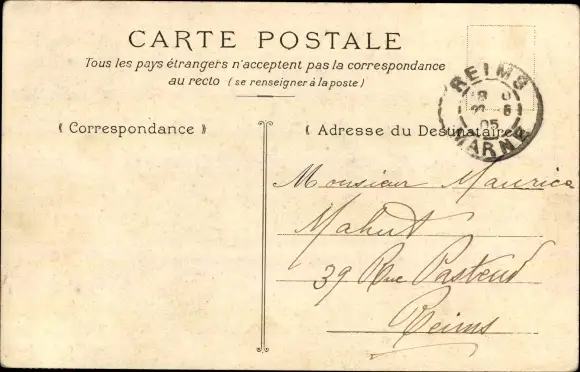 CARTE POSTALE
Tous les pays étrangers n'acceptent pas la correspondance
au recto (se renseigner à la poste)
REIMS
05
MARNE
(Correspondance)
(Adresse du Destinataire)
Monsieur Maurice
Mahut
39 Rue Pasteur
Reims